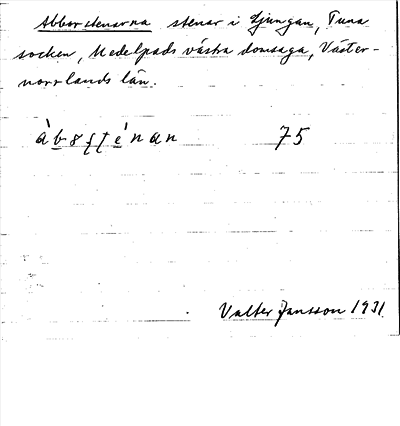 Abborstenarna stenar i Ljungan, Tuna
socken, Medelpads västra domsaga, Väster-
norrlands län.
75
Valter Jansson 1931.